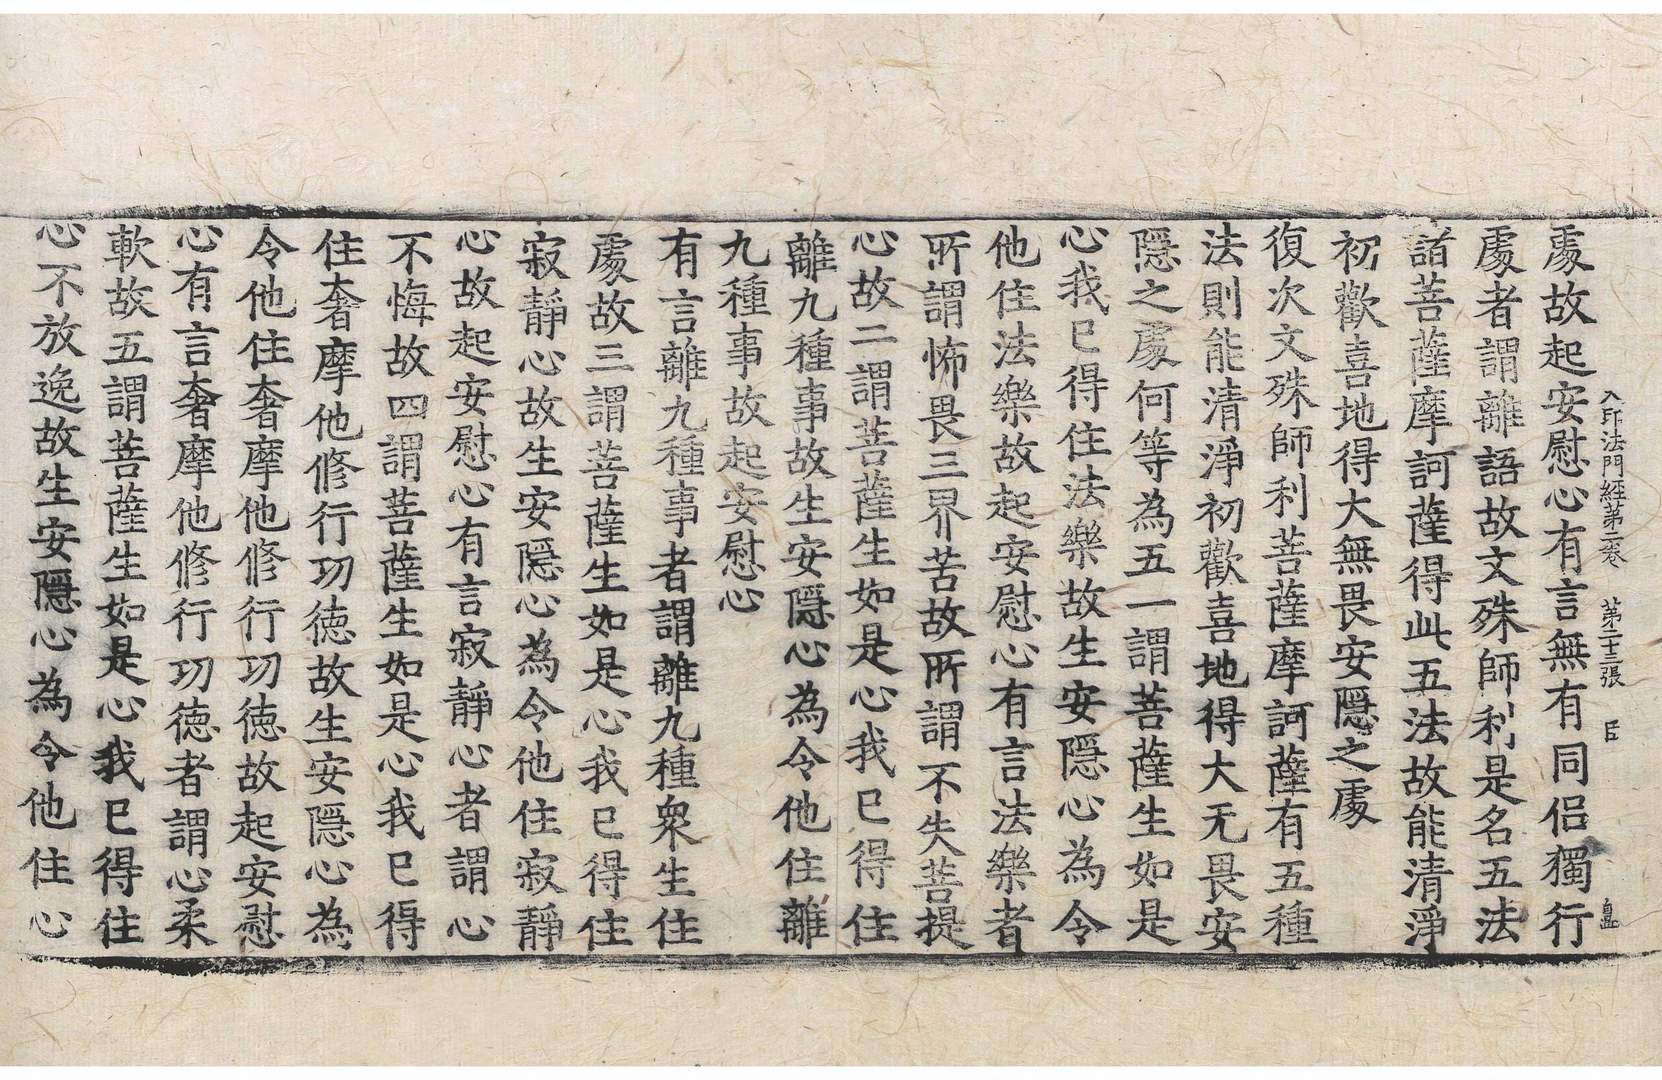 入印法門經第二卷 第二十三張 臣 盁
處故起安慰心有言無有同侶獨行
處者謂離語故文殊師利是名五法
諸菩薩摩訶薩得此五法故能清淨
初歡喜地得大無畏安隱之處
復次文殊師利菩薩摩訶薩有五種
法則能清淨初歡喜地得大无畏安
隱之處何等為五一謂菩薩生如是
心我已得住法樂故生安隱心為令
他住法樂故起安慰心有言法樂者
所謂怖畏三界苦故所謂不失菩提
心故二謂菩薩生如是心我已得住
離九種事故生安隱心為令他住離
九種事故起安慰心
有言離九種事者謂離九種衆生住
處故三謂菩薩生如是心我已得住
寂靜心故生安隱心為令他住寂靜
心故起安慰心有言寂靜心者謂心
不悔故四謂菩薩生如是心我已得
住奢摩他修行功德故生安隱心為
令他住奢摩他修行功德故起安慰
心有言奢摩他修行功德者謂心柔
軟故五謂菩薩生如是心我已得住
心不放逸故生安隱心為令他住心